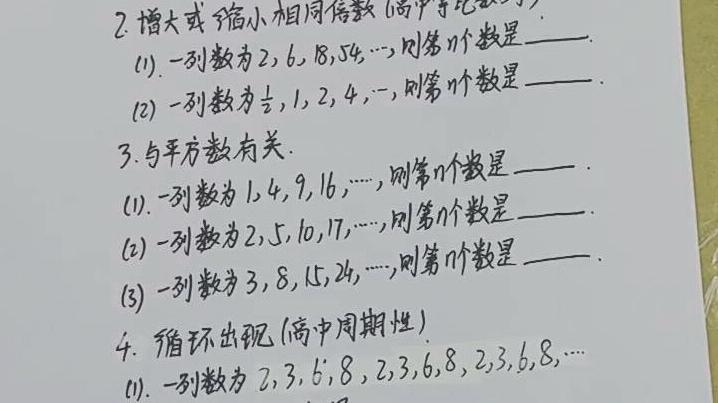 2. 增大或缩小相同倍数(高中等比数列)
(1). 一列数为2, 6, 18, 54, …, 则第n个数是______.
(2) 一列数为½, 1, 2, 4, …, 则第n个数是______.
3. 与平方数有关.
(1). 一列数为1, 4, 9, 16, ……, 则第n个数是______.
(2) 一列数为2, 5, 10, 17, ……, 则第n个数是______.
(3) 一列数为3, 8, 15, 24, ……, 则第n个数是______.
4. 循环出现(高中周期性)
(1). 一列数为 2, 3, 6, 8, 2, 3, 6, 8, 2, 3, 6, 8, ……